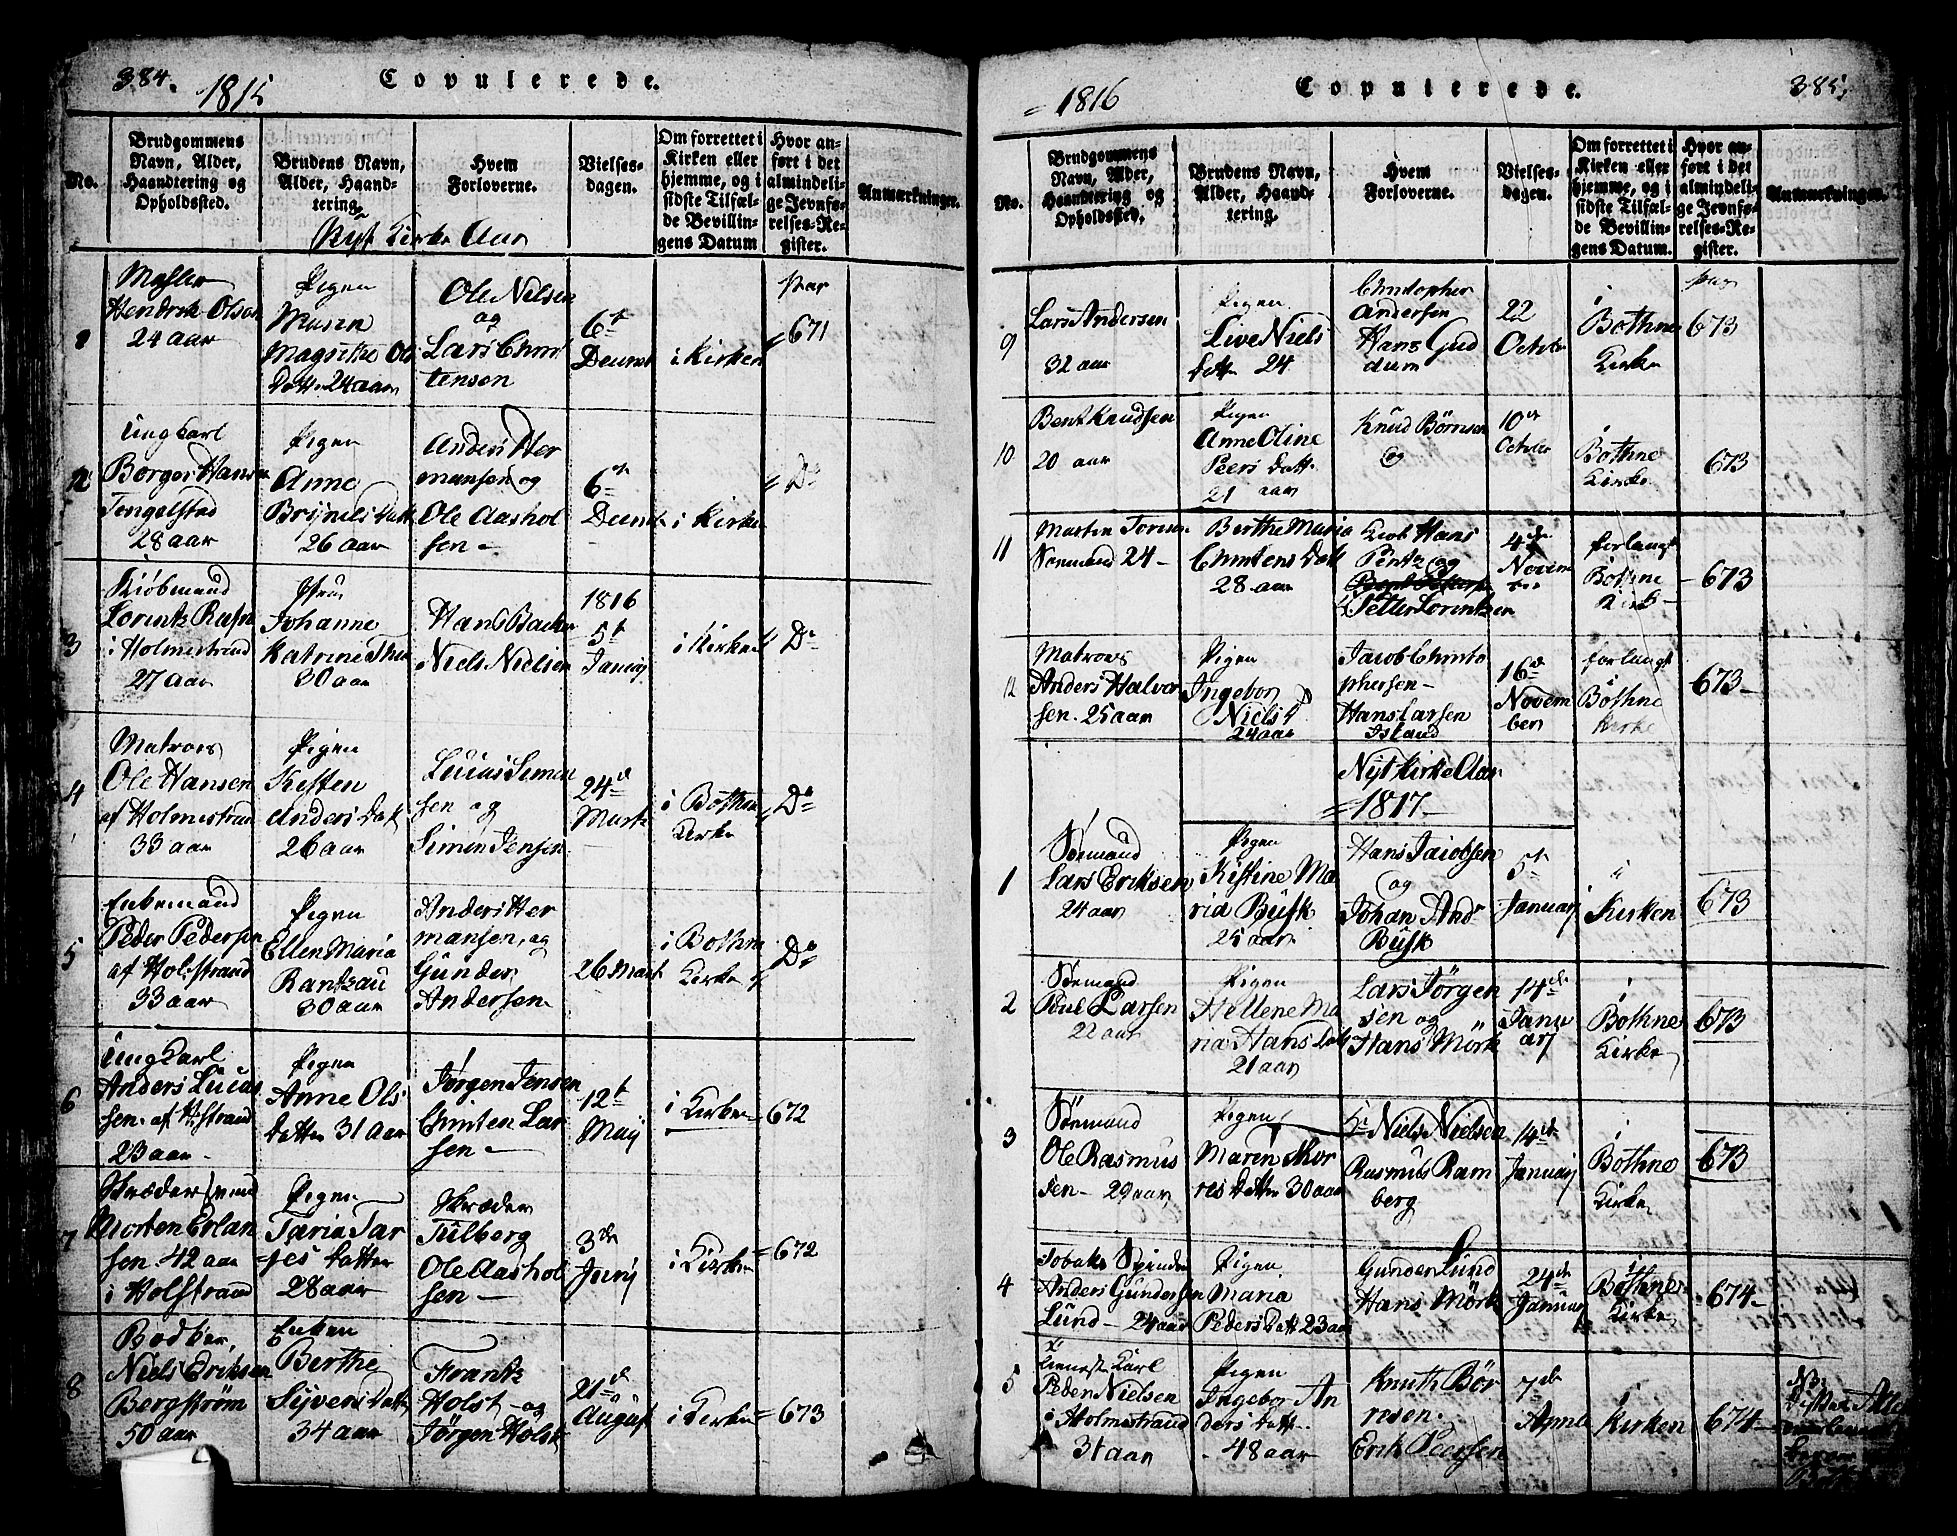 384.
1815
Copulerede.
No.
Brudgommens
Navn, Alder,
Haandtering og
Opholdssted.
Brudens Navn,
Alder, Haand-
tering.
Hvem
Forloverne.
Vielses-
dagen.
Om forrettet i
Kirken eller
hjemme, og i
sidste Tilfæl-
de Bevillin-
gens Datum
Hvor an-
ført i det
almindeli-
ge Jevnfø-
relses-Re-
gister.
Anmærkninger.
Nyt Kirke Aar
Hendrik Olsen
24 aar
Pigen
Maren
Magrethe Ols
Datter 24 aar
Ole Nielsen
og
Lars Chris
tensen
6te
Decembr
i Kirken
671
2
Ung Karl
Borger Hansen
Tengelstad
28 aar
Pigen
Anne
Brynils Datt
26 aar
Anders Her
mansen og
Ole Aashol
sen
6te
Decembr
i Kirken
Do
3
Kiöbmand
Lorentz Rasm
i Holmestrand
27 aar
Johanne
Katrine
30 aar
Hans Backe
Niels Nielsen
1816
5te
Januarj
i Kirken
Do
4
Matros
Ole Hansen
af Holmestrand
33 aar
Pigen
Kisten
Anders Datt
26 aar
Lucas Simon
sen og
Simon Jensen
24de
Marts
i Bothne
Kirke
Do
5
Enkemand
Peder Pedersen
af Holmstrand
33 aar
Pigen
Ellen Maria
Rantzau
30 aar
Anders Her
mansen, og
Gunder
Andersen
26 Mart
i Bothne
Kirke
Do
6
Ung Karl
Anders Lucas
sen af H.strand
23 aar
Pigen
Anne Ols
datter 31 aar
Jørgen Jensen
Christen Lar
sen
12te
Maij
i Kirken
672
7
Skræder Svend
Morten Erlan
sen 42 aar
i Holstrand
Pigen
Taria Tar
jes datter
28 aar
Skræder
Tulberg
Ole Aashol
sen
3de
Junj
i Kirken
672
8
Bødker,
Niels Eriksen
Bergstrøm
50 aar
Enken
Berthe
Syvers Datt
34 aar
Frantz
Holst og
Jørgen Holst
21de
August
i Kirken
673
1816
Copulerede.
385.
No.
Brudgommens
Navn, Alder,
Haandtering og
Opholdssted.
Brudens Navn,
Alder, Haand-
tering.
Hvem
Forloverne.
Vielses-
dagen.
Om forrettet i
Kirken eller
hjemme, og i
sidste Tilfæl-
de Bevillin-
gens Datum.
Hvor an-
ført i det
almindeli-
ge Jevnfø-
relses-Re-
gister.
Anmærkninger.
9
Lars Andersen
32 aar
Pigen
Live Niels
datter 24
Christopher
Andersen
Hans Gud
dum
22
Octobr
i
Bothne
Kirke
pag
673
10
Bent Knudsen
20 aar
Pigen
Anne Oline
Peers datt
21 aar
Knud Börresen
og
10de
Octobr
i
Bothne
Kirke
673
11
Martin
Sømand 24
Berthe Maria
Christens Datt
28 aar
Hans
Pentz og
Petter Lorentzen
4de
Novem
ber
forlangt
Bothne
Kirke
673
12
Matros
Anders Halvor
sen. 25 aar
Pigen
Ingebor
Niels D
24 aar
Jacob Christo
phersen
Hans Larsen
Island
16de
Novem
ber
forlangt
i
Bothne
Kirke
673
Nyt Kirke Aar
1817
1
Sømand
Lars Eriksen
24 aar
Pigen
Kistine Ma
ria Busk
25 aar
Hans Jacobsen
og
Johan Andr
Busk
5te
Januarj
i
Kirken
673
2
Sømand
Poul Larsen
22 aar
Pigen
Hellene Ma
ria Hans Datt
21 aar
Lars Jörgen
sen og
Hans Mörk
14de
Janu
arj
i
Bothne
Kirke
673
3
Sømand
Ole Rasmus
sen 29 aar
Pigen
Maren Thor
res datter 30 aar
Niels Nielsen
Rasmus Ram
berg
14de
Januarj
i
Bothne
Kirke
673
4
Tobaks Spinder
Anders Gundersen
Lund 24 aar
Pigen
Maria
Peders Datt 23 aar
Gunder Lund
Hans Mörk
24de
Januar
i
Bothne
Kirke
674
5
Karl
Peder Nielsen
i Holmestrand
31 aar
Pigen
Ingebor An
ders datt
48 aar
Knuth Bör
resen
Erik Peersen
7de
Kirken
674